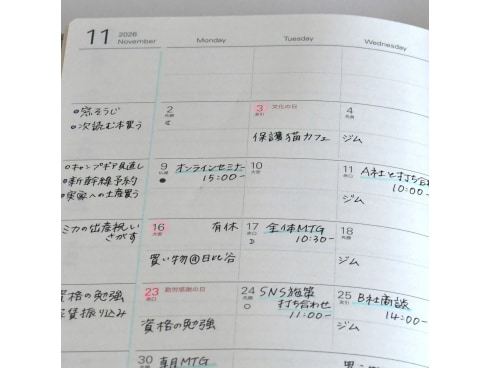 11 2026
November
Monday Tuesday Wednesday
窓そうじ
次読む本買う
2
先勝
3 文化の日
友引
保護猫カフェ
4
先負
ジム
キャンプギア見直し
新幹線予約
実家への土産買う
9 オンラインセミナー
仏滅
15:00-
10
大安
11 A社と打ち合わ
赤口
10:00-
ジム
ミカの出産祝い
さがす
16 有休
大安
買い物@日比谷
17 全体MTG
赤口
10:30-
18
先勝
ジム
資格の勉強
賃振り込み
23 勤労感謝の日
赤口
資格の勉強
24 SNS施策
先勝
打ち合わせ
11:00-
25 B社商談
友引
14:00-
ジム
30 朝MTG